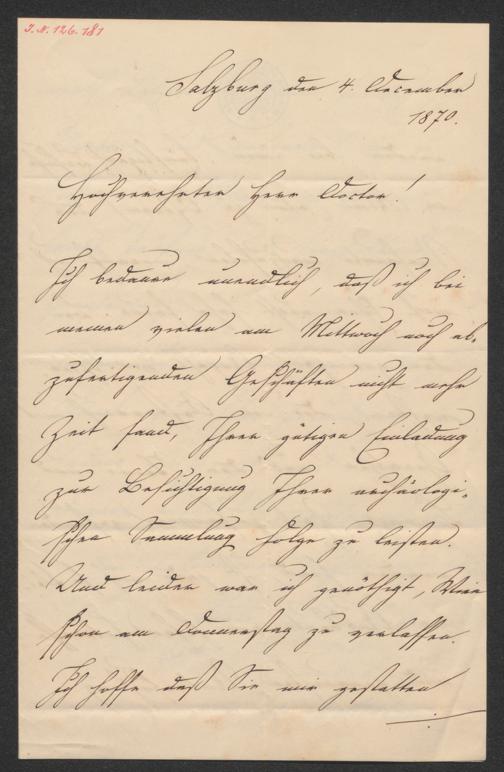 I. N. 126.181
Salzburg den 4. December
1870.
Hochverehrter Herr Doctor!
Ich bedaure unendlich, daß ich bei
meinen vielen am Mittwoch noch ab-
zufertigenden Geschäften nicht mehr
Zeit fand, Ihrer gütigen Einladung
zur Besichtigung Ihrer archäologi-
schen Sammlung Folge zu leisten.
Und leider war ich genöthigt, Wien
schon am Donnerstag zu verlassen.
Ich hoffe daß Sie mir gestatten